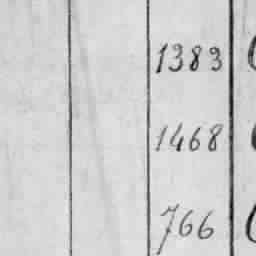 1383
1468
766